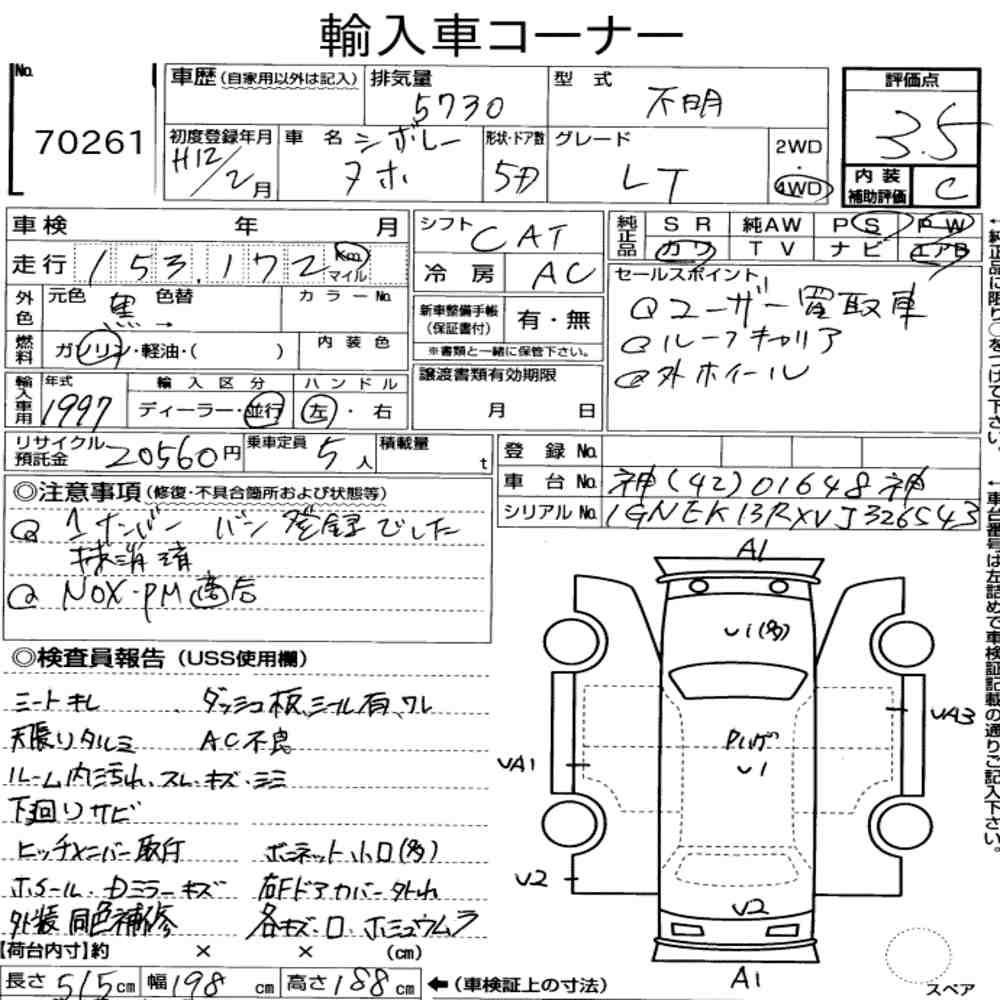 輸入車コーナー
No. 70261
車歴 (自家用以外は記入) 排気量 5730 型式 不明 評価点 3.5
初度登録年月 H12/2月 車名 シボレー タホ 形状・ドア数 5D グレード LT 2WD・4WD 内装補助評価 C
車検 年 月
走行 153,172 Km マイル
シフト CAT
冷房 AC
純正品 SR 純AW PS PW
カワ TV ナビ エアB
←純正品に限り○をつけて下さい。
セールスポイント
Qユーザー買取車
Qルーフキャリア
Q外ホイール
外色 元色 黒 → 色替 カラーNo.
燃料 ガソリン・軽油・( ) 内装色
新車整備手帳(保証書付) 有・無
※書類と一緒に保管下さい。
輸入車用 年式 1997 輸入区分 ディーラー・並行 ハンドル 左・右
譲渡書類有効期限 月 日
リサイクル預託金 20560円 乗車定員 5人 積載量 t
登録No.
車台No. 神(42)01648神
シリアルNo. 1GNEK13RXVJ326543
←車台番号は左詰めで車検証記載の通りご記入下さい。
◎注意事項(修復・不具合箇所および状態等)
Q 1ナンバー バン登録でした
抹消済
Q NOX・PM適合
◎検査員報告(USS使用欄)
シートキレ ダッシュ板シール有、ワレ
天張りタルミ AC不良
ルーム内汚れ、スレ・キズ・シミ
下廻りサビ
ヒッチメンバー取付 ボンネット小口(多)
ホイール・Dミラーキズ 右Fドアカバー外れ
外装同色補修 各キズ・口
A1
U1(多)
UA3
U1
UA1
U2
U2
A1
スペア
【荷台内寸】約 × × (cm)
長さ 515cm 幅 198cm 高さ 188cm ←(車検証上の寸法)